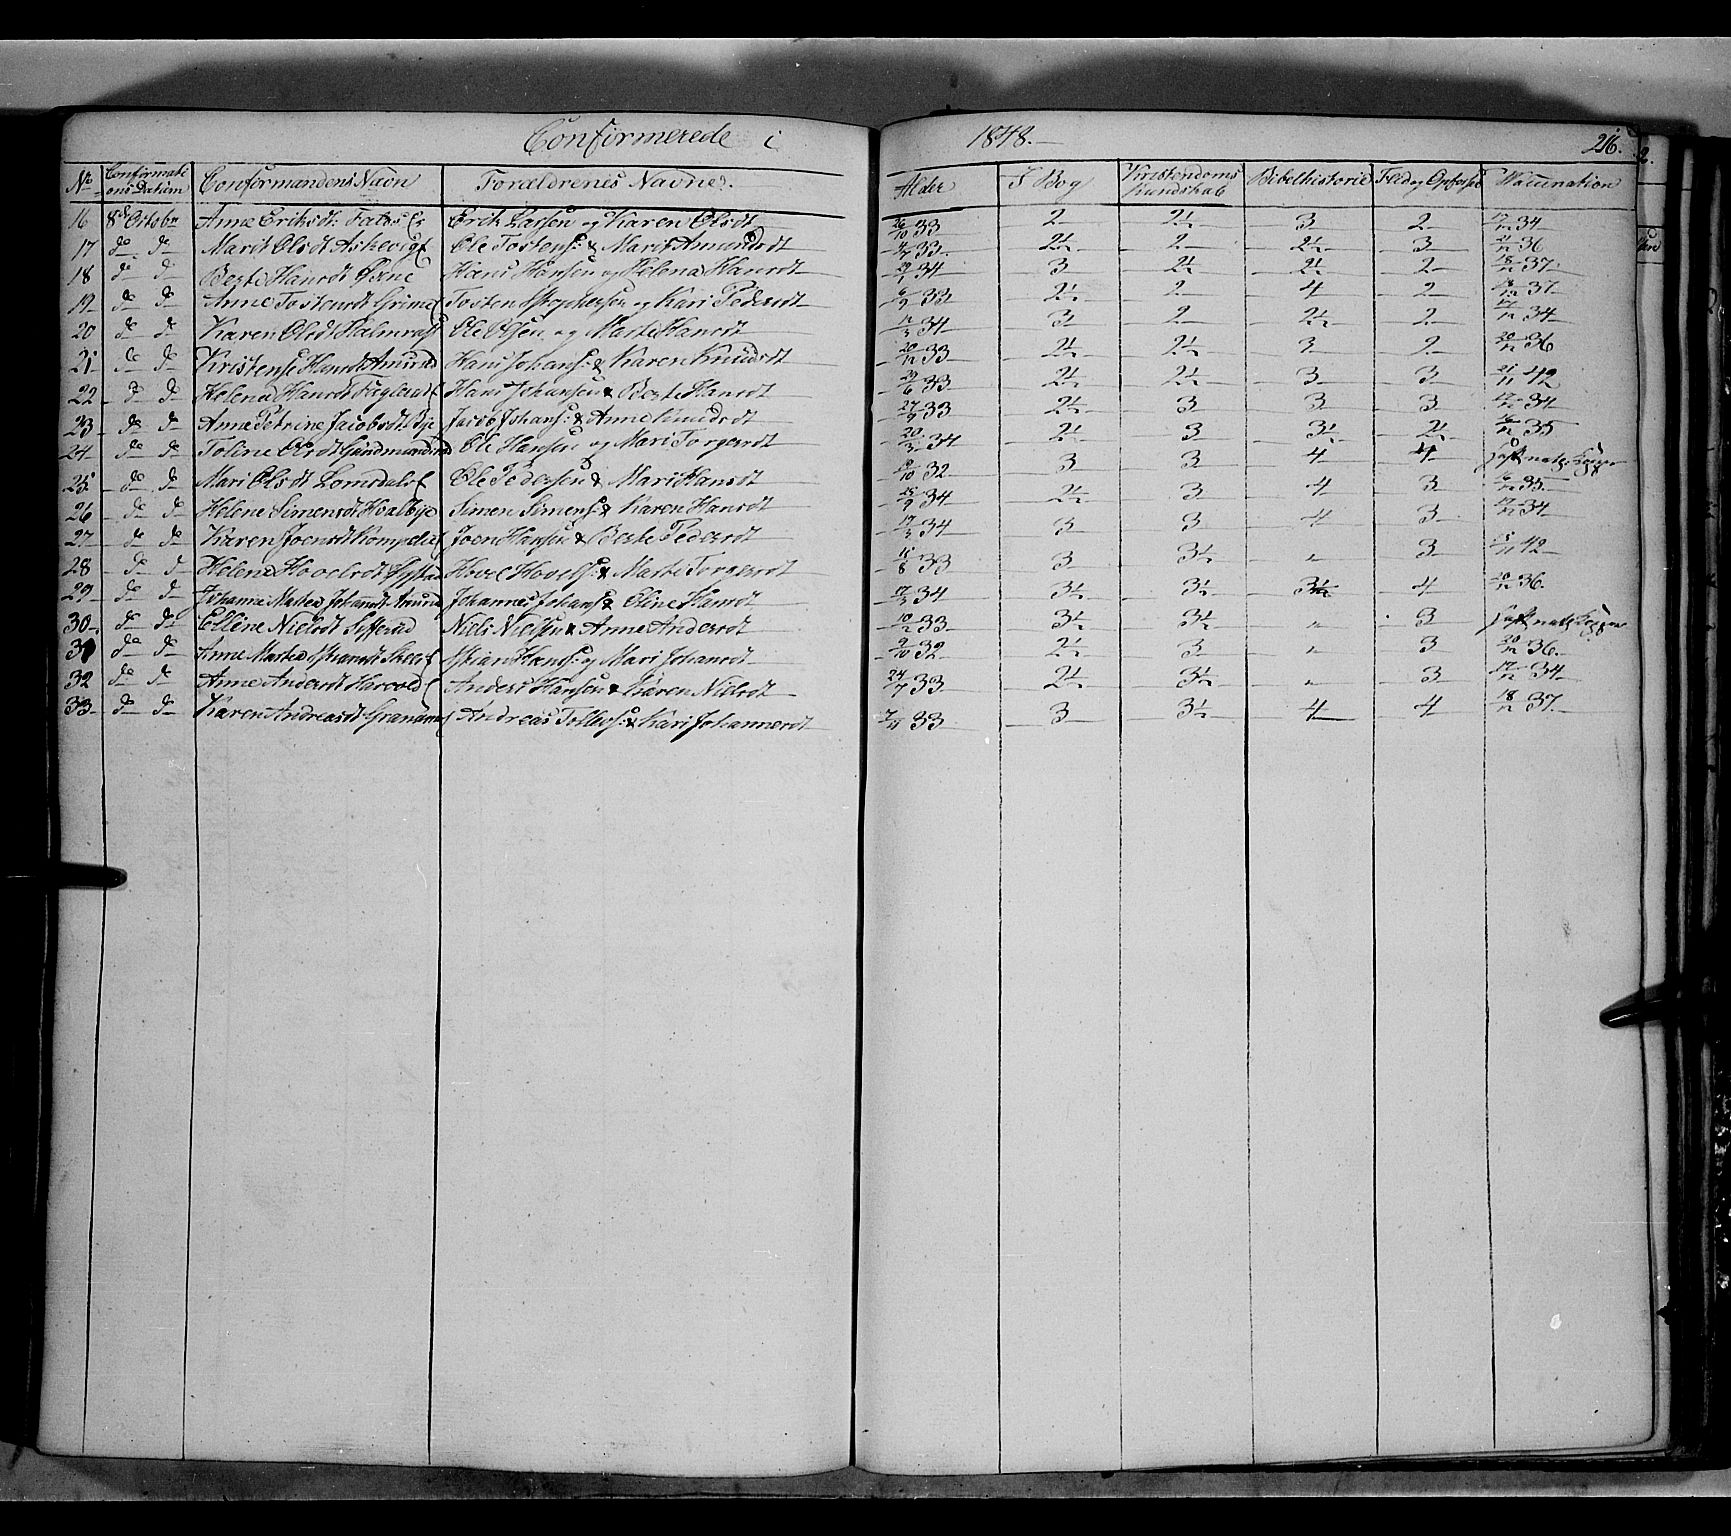 Confirmerede i 1848.— 216.
No Confirmations Datum Confirmandens Navn Forældrenes Navne. Alder I Bog Kristendoms Kundskab Bibelhistorie Flid og Opførsel Vaccination
16 8de Octobr Anne Eriksdt. Erik Larsen og Karen Olsdt 26/10 33 2 2½ 3 2 17/12 34
17 do do Marit Olsdt Askevig Ole Tostens: & Marit Amundsdt 33 2½ 2 2½ 3 21/12 36
18 do d Berte Hansdt Hans Hansen og Helena Hansdt 29/1 34 3 2½ 2½ 2 18/12 37
19 do do Anne Tostensdt Tosten og Kari Pedersdt 6/9 33 2½ 2 4 2 18/12 37
20 do do Karen Olsdt Ole Olsen og Marte Hansdt 11/3 34 3 2 2½ 2 17/12 34
21 do do Kristense Hansdt Amund Hans Johans: & Karen Knudsdt 20/12 33 2½ 2½ 3 2 20/12 36
22 d d Helena Hansdt Hans Johansen & Berte Hansdt 29/6 33 2½ 2½ 3 3 21/11 42
23 do do Anne Petrine Jacobsdt Bye Jacob Johans: & Anne Knudsdt 27/9 33 2½ 3 3 3 17/12 34
24 do do Toline Olsdt Ole Hansen og Mari Torgersdt 20/3 34 2½ 3 3½ 2½ 35
25 do do Mari Olsdt Lomsdal Ole Pedersen & Mari Hansdt /10 32 3 3 4 4 natl. Kopper
26 do do Helene Simensdt Hvalbye Simen Simens: & Karen Hansdt 34 2½ 3 4 3 35
27 do do Karen Joensdt Joen Hansen & Berte Pedersdt 17/3 34 3 3 4 3 17/12 34
28 d d Helene Hovelsdt Hovel Hovels: & Marte Torgersdt /8 33 3 3½ „ 3 /11 42
29 do do Johanne Mathea Johansdt Johannes Johans: & Eline Hansdt 17/3 34 3½ 3½ 3½ 4 20/12 36
30 do do Ellene Nielsdt Niels Nielsen & Anne Andersdt 10/2 33 3½ 3½ „ 3 natl. Kopper
31 do do Anne Mathea Hans: og Mari Johansdt 9/10 32 2½ 3 „ 3 20/12 36
32 do do Anne Andersdt Anders Hansen & Karen Nielsdt 24/7 33 2½ 3½ „ 3 17/12 34
33 do do Karen Andreasdt Andreas & Kari Johannesdt 33 3 3½ 4 4 18/12 37